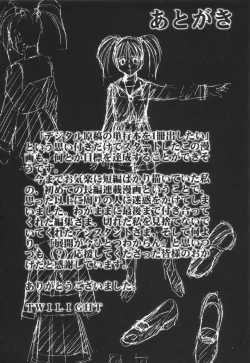 あとがき
「デジタル原稿の単行本を1冊出したい」
という思い付きだけでスタートしたこの漫
画も、何とか目標を達成することができそ
うです。
今までお気楽に短編ばかり描いていた私
の、初めての長編連載漫画ということで、
思った以上に周りの人に迷惑をかけてし
まいました。わがままに最後まで付き合って
くれた編集さま、
てくれたアシスタントさま、そして
「展開がさっぱりわからん」と思いつ
つも応援して下さった皆様のおか
げだと感謝しています。
ありがとうございました。
TWILIGHT